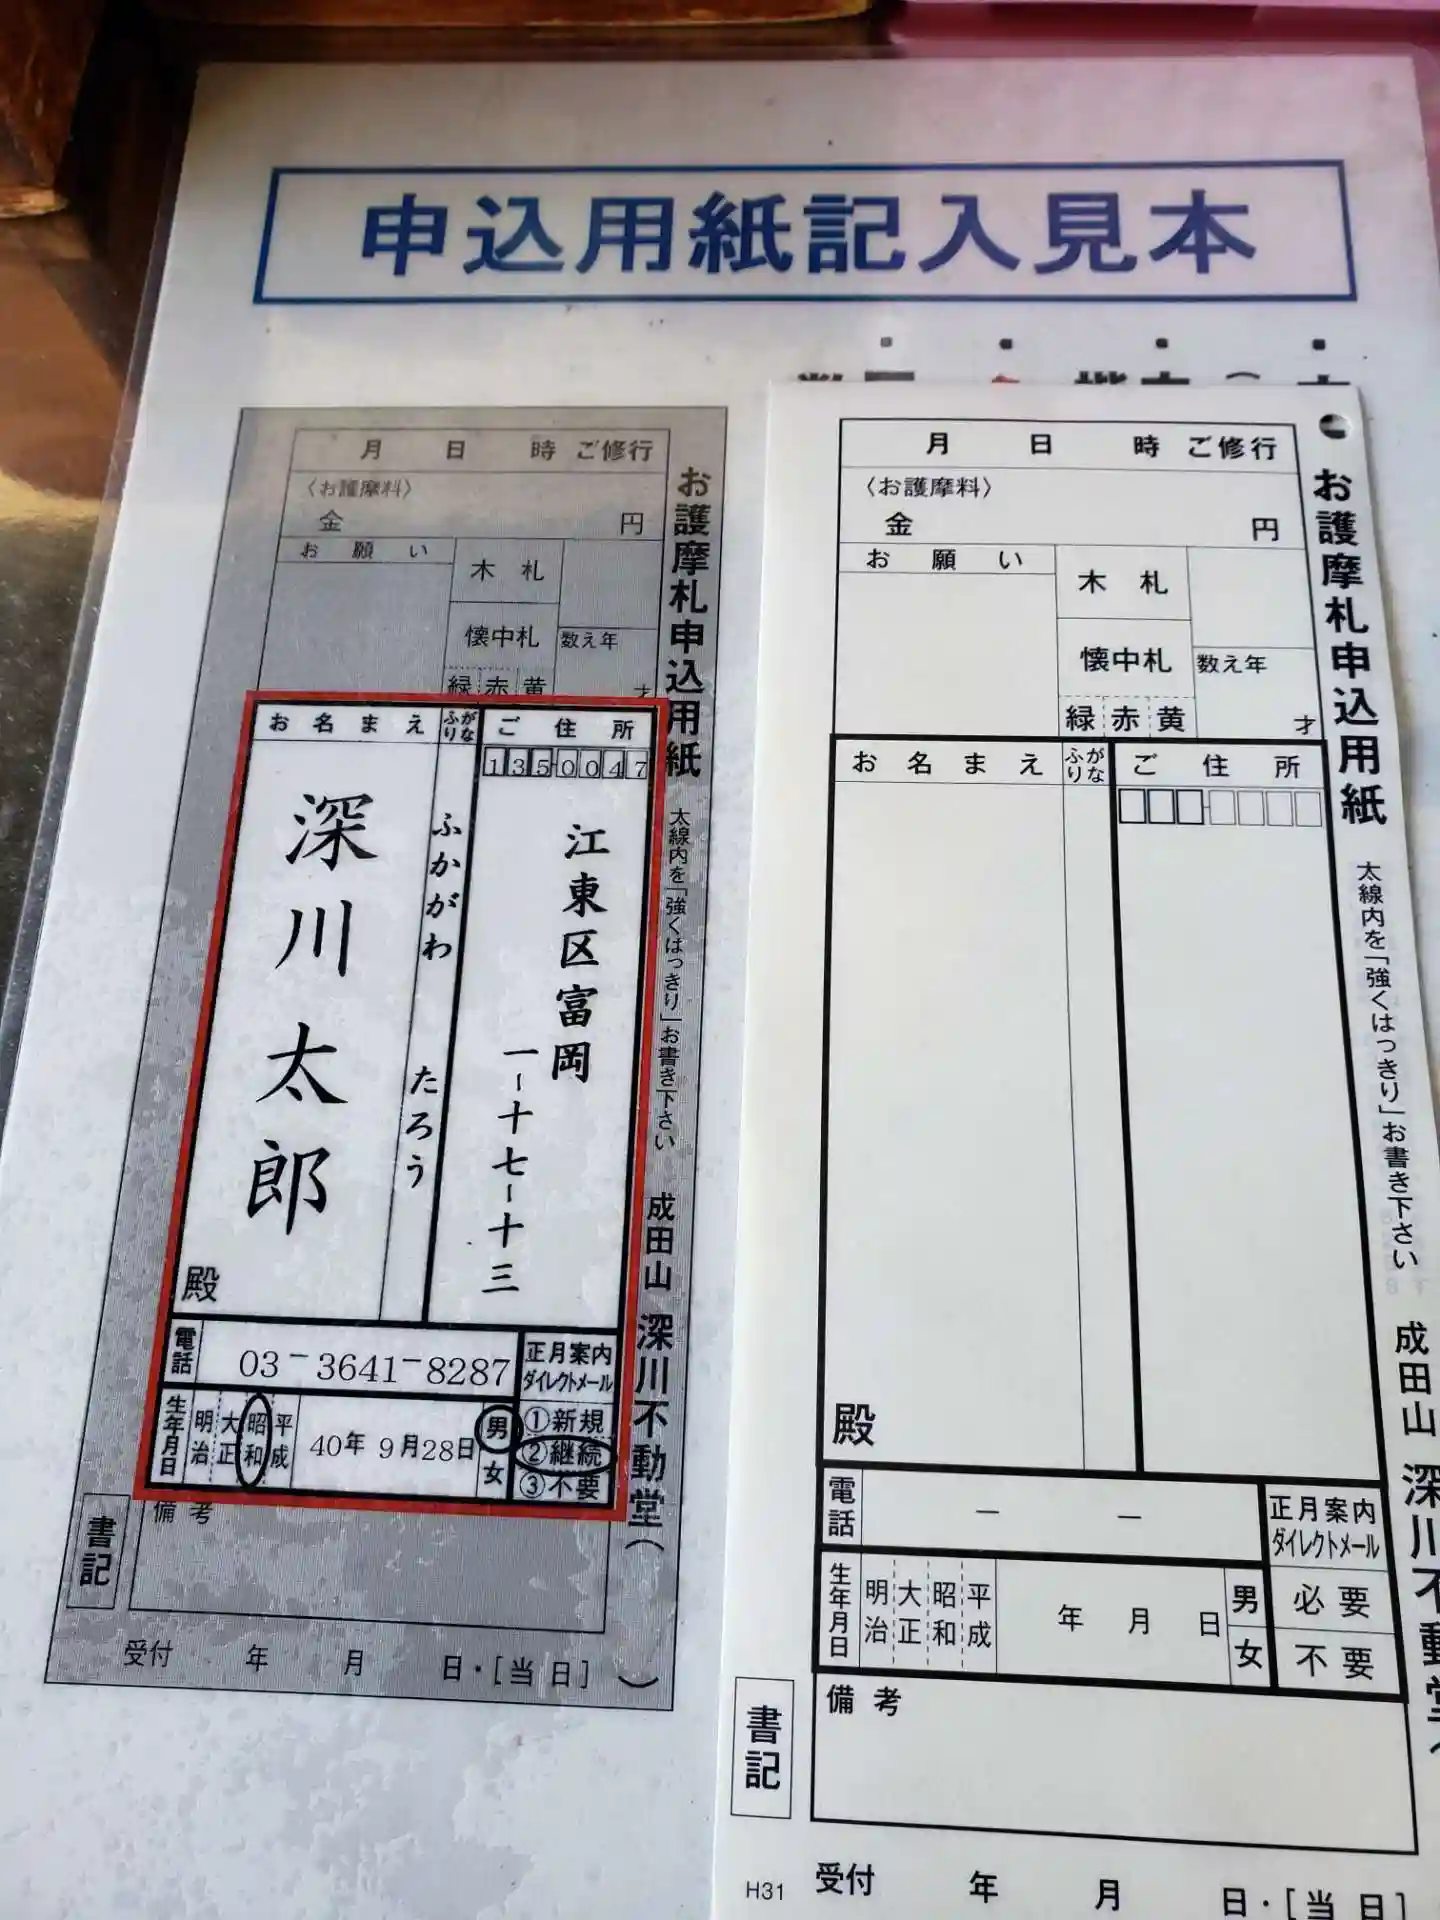 申込用紙記入見本
お護摩札申込用紙
太線内を「強くはっきり」お書き下さい
成田山 深川不動堂(
)
月 日 時 ご修行
〈お護摩料〉
金 円
お願い
木札
懐中札
緑 赤 黄
数え年
才
ご住所
135-0047
江東区富岡
一-十七-十三
ふりがな
ふかがわ たろう
お名まえ
深川太郎
殿
電話
03-3641-8287
正月案内
ダイレクトメール
①新規
②継続
③不要
生年月日
明治 大正 昭和 平成
40年 9月28日
男
女
備考
書記
受付 年 月 日・[当日]
お護摩札申込用紙
太線内を「強くはっきり」お書き下さい
成田山 深川不動堂
月 日 時 ご修行
〈お護摩料〉
金 円
お願い
木札
懐中札
緑 赤 黄
数え年
才
ご住所
ふりがな
お名まえ
殿
電話
― ―
正月案内
ダイレクトメール
必要
不要
生年月日
明治 大正 昭和 平成
年 月 日
男
女
備考
書記
H31
受付 年 月 日・[当日]